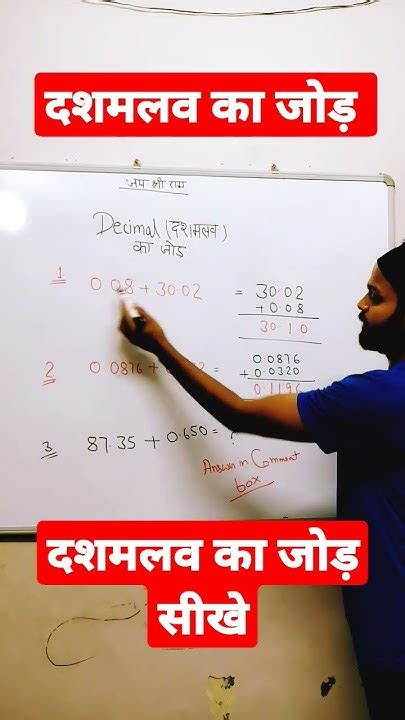 दशमलव का जोड़
जय श्री राम
Decimal (दशमलव)
का जोड़
1 0.08 + 30.02 = 30.02
+0.08
30.10
2 0.0876 + = 0.0876
+ 0.0320
0.1196
3 87.35 + 0.650 = ?
Answer in Comment
box
दशमलव का जोड़
सीखे